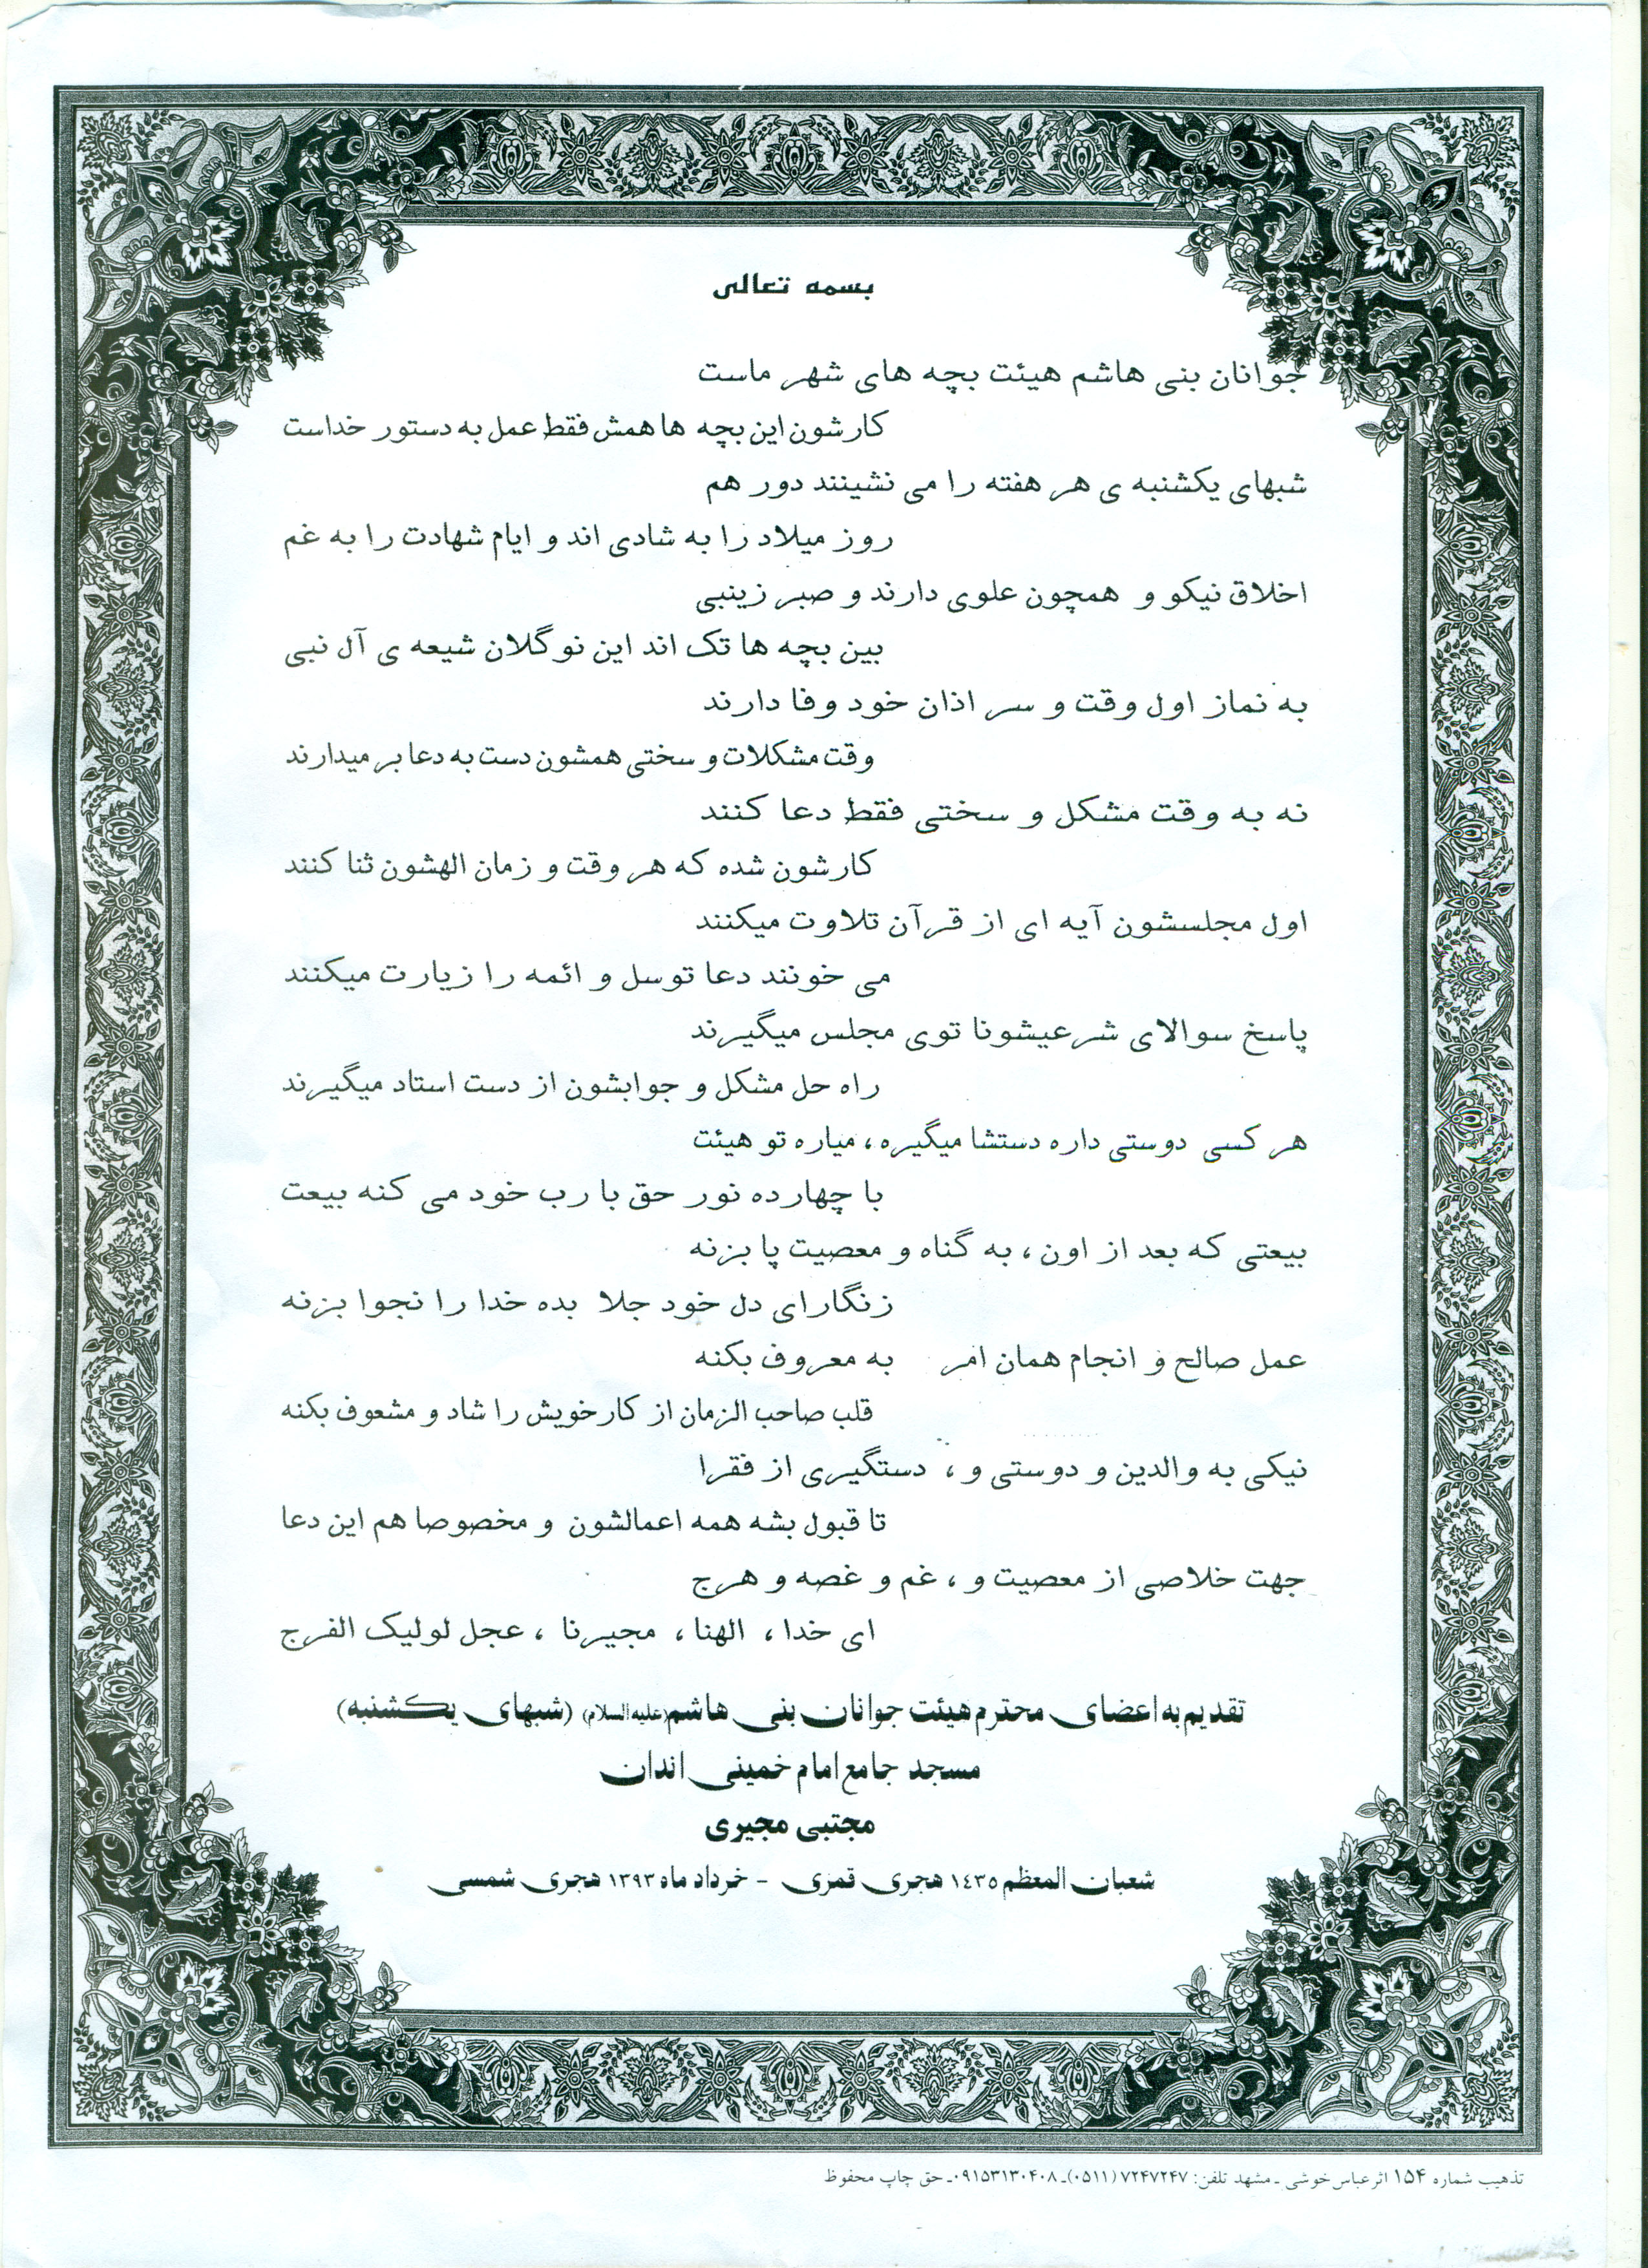 بسمه تعالی
جوانان بنی هاشم هیئت بچه های شهر ماست
کارشون این بچه ها همش فقط عمل به دستور خداست
شبهای یکشنبه ی هر هفته را می نشینند دور هم
روز میلاد را به شادی اند و ایام شهادت را به غم
اخلاق نیکو و همچون علوی دارند و صبر زینبی
بین بچه ها تک اند این نوگلان شیعه ی آل نبی
به نماز اول وقت و سر اذان خود وفا دارند
وقت مشکلات و سختی همشون دست به دعا بر میدارند
نه به وقت مشکل و سختی فقط دعا کنند
کارشون شده که هر وقت و زمان الهشون ثنا کنند
اول مجلسشون آیه ای از قرآن تلاوت میکنند
می خونند دعا توسل و ائمه را زیارت میکنند
پاسخ سوالای شرعیشونا توی مجلس میگیرند
راه حل مشکل و جوابشون از دست استاد میگیرند
هر کسی دوستی داره دستشا میگیره ، میاره تو هیئت
با چهارده نور حق با رب خود می کنه بیعت
بیعتی که بعد از اون ، به گناه و معصیت پا بزنه
زنگارای دل خود جلا بده خدا را نجوا بزنه
عمل صالح و انجام همان امر به معروف بکنه
قلب صاحب الزمان از کار خویش را شاد و مشعوف بکنه
نیکی به والدین و دوستی و ، دستگیری از فقرا
تا قبول بشه همه اعمالشون و مخصوصا هم این دعا
جهت خلاصی از معصیت و ، غم و غصه و هرج
ای خدا ، الهنا ، مجیرنا ، عجل لولیک الفرج
تقدیم به اعضای محترم هیئت جوانان بنی هاشم(علیه السلام) (شبهای یکشنبه)
مسجد جامع امام خمینی اندان
مجتبی مجیری
شعبان المعظم ۱٤۳۵ هجری قمری - خرداد ماه ۱۳۹۳ هجری شمسی
تذهیب شماره ۱۵۴ اثر عباس خوشی ـ مشهد تلفن: ۷۲۴۷۲۴۷ (۰۵۱۱)ـ ۰۹۱۵۳۱۳۰۴۰۸ـ حق چاپ محفوظ